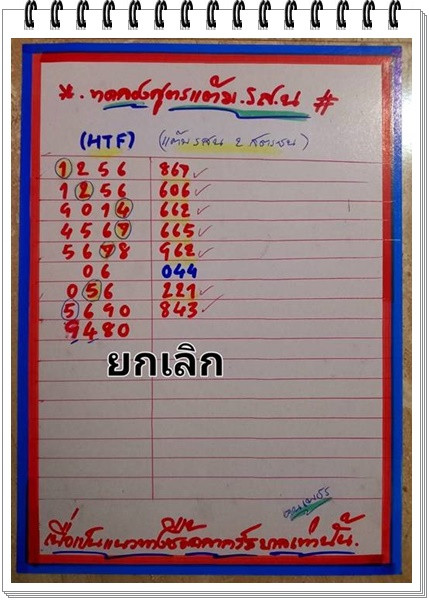 *. ทดลองสูตรแต้ม.รส.น #
(HTF) (แต้มรสน 2 สตรชน)
1256 867 ✓
1256 606 ✓
9014 662 ✓
4567 665 ✓
5678 962 ✓
06 044
056 221 ✓
5690 843 ✓
9480
ยกเลิก
เพื่อเป็นแนวทางซื้อฉลากรัฐบาลเท่านั้น.